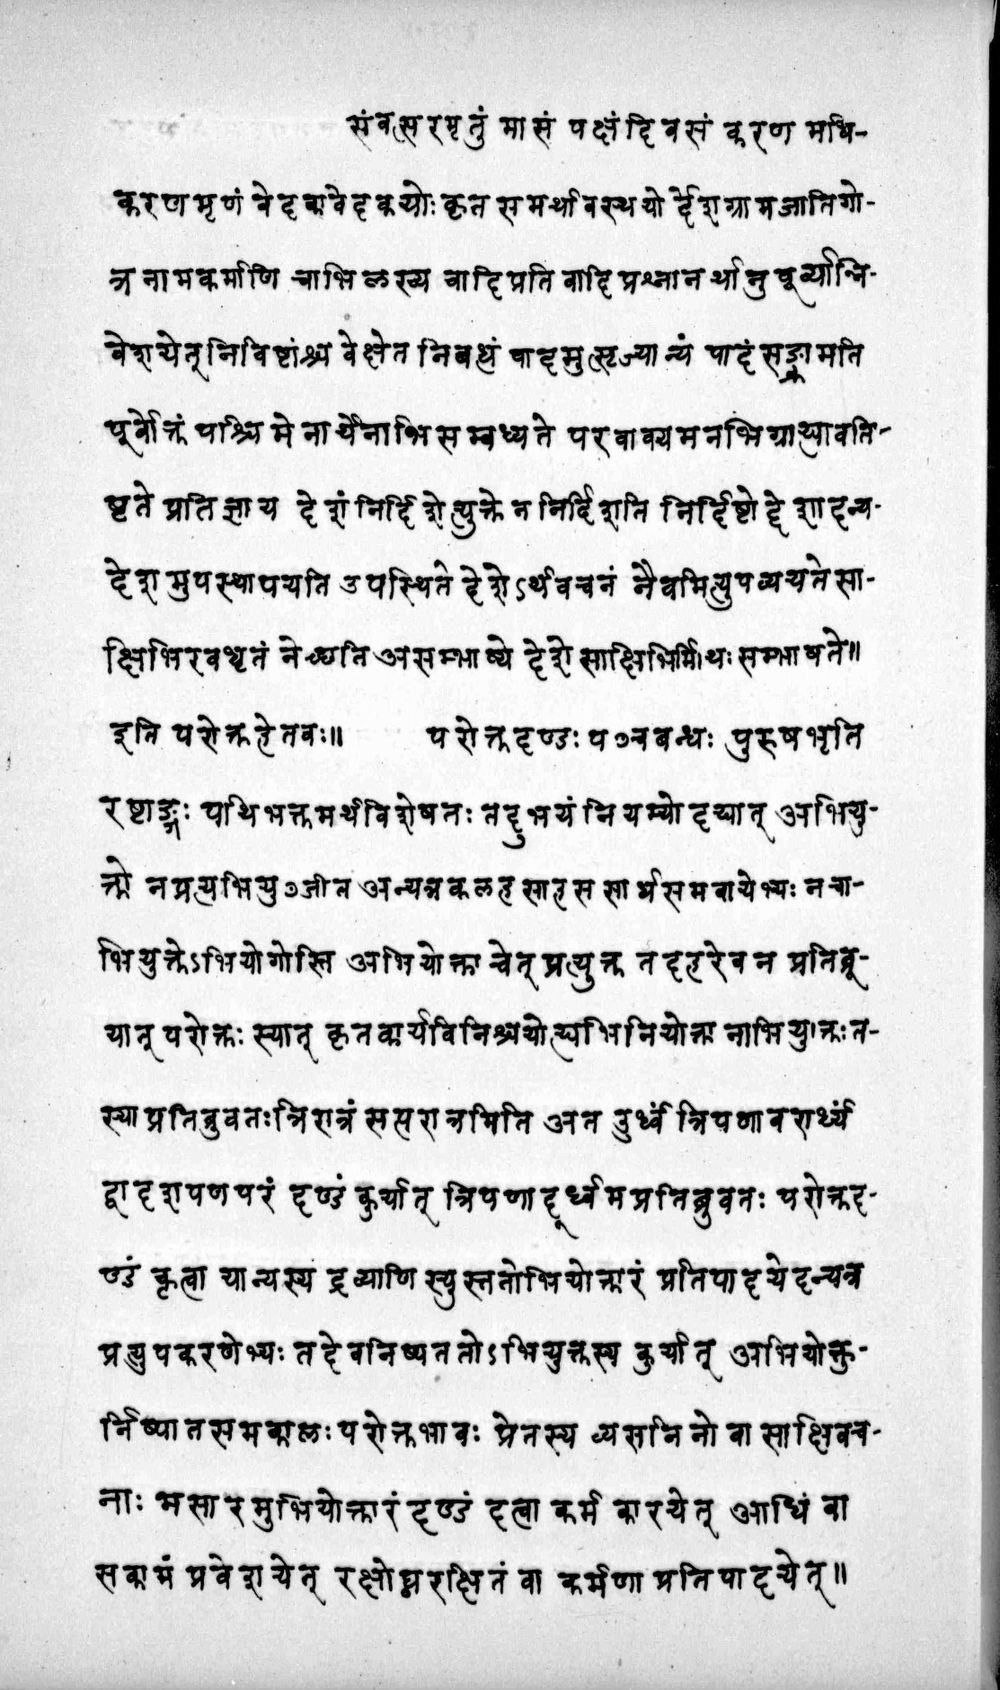 संवत्सरमृतुं मासं पक्षं दिवसं करण मधि-
करणमृणं वेदकावेदकयोः कृत समर्थावस्थयोर्देशग्रामजातिगो-
त्र नामकर्माणि चाभिलख्य वादिप्रतिवादिप्रश्नानर्थानुपूर्व्यान्नि-
वेशयेत् निविष्टांश्चवेक्षेत निबद्धं पादमुत्सृज्यान्यं पादं सङ्क्रामति
पूर्वोक्तं पश्चिमेनार्थेनाभिसम्बध्यते परवाक्यमनभिग्राह्यावति-
ष्टते प्रतिज्ञाय देशं निर्दिशेत्युक्ते न निर्दिशति निर्दिष्टोद्देशादन्य-
देशमुपस्थापयति उपस्थिते देशेऽर्थवचनं नैवमित्युपव्ययते सा-
क्षिभिरवधृतं नेच्छति असम्भाष्ये देशे साक्षिभिर्मिथः सम्भाषते॥
इति परोक्तहेतवः॥ परोक्तदण्डः पञ्चबन्धः पुरुषभृति
रष्टाङ्गः पथिभक्तमर्थविशेषतः तदुभयं नियम्योदद्यात् अभियु-
क्तो न प्रत्यभियुञ्जीत अन्यत्रकलहसाहससार्थसमवायेभ्यः नचा-
भियुक्तेऽभियोगोस्ति अभियोक्ता चेत् प्रत्युक्त तदहरेवन प्रतिब्रू-
यात् परोक्तः स्यात् कृतकार्यविनिश्चयोह्यभिनियोक्ता नाभियुक्तः त-
स्याप्रतिब्रुवतःत्रिरात्रं सप्तरात्रमिति अत उर्ध्वं त्रिपणावरार्ध्यं
द्वादशपणपरं दण्डं कुर्यात् त्रिपणादूर्ध्वमप्रतिब्रुवतः परोक्तद-
ण्डं कृत्वा यान्यस्य द्रव्याणि स्युस्ततोभियोक्तारं प्रतिपादयेदन्यत्र
प्रत्युपकरणेभ्यः तदेवनिष्पततोऽभियुक्तस्य कुर्यात् अभियोक्तु-
र्निष्पातसमकालः परोक्तभावः प्रेतस्य व्यसनिनो वा साक्षिवच-
नाः मसारमुभियोक्तारं दण्डं दत्वा कर्म कारयेत् आधिं वा
सकामं प्रवेशयेत् रक्षोघ्नरक्षितं वा कर्मणाप्रतिपादयेत्॥